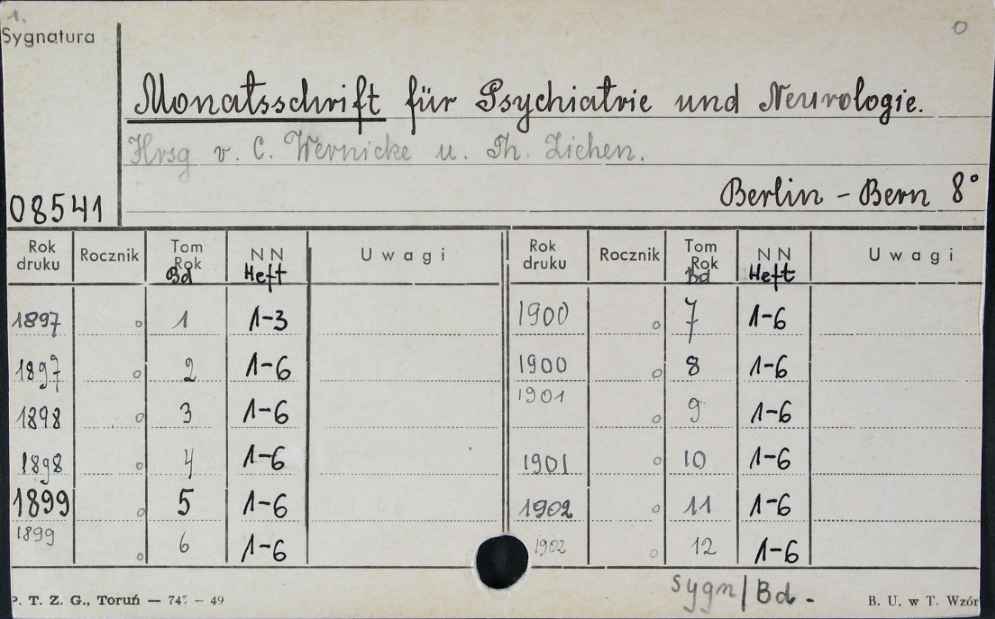 1.
Sygnatura
Monatsschrift für Psychiatrie und Neurologie.
Hrsg v. C. Wernicke u. Th. Ziehen.
Berlin - Bern 8°
08541
Rok druku Rocznik Tom Rok Bd NN Heft Uwagi Rok druku Rocznik Tom Rok Bd NN Heft Uwagi
1897 1 1-3 1900 7 1-6
1897 2 1-6 1900 8 1-6
1898 3 1-6 1901 9 1-6
1898 4 1-6 1901 10 1-6
1899 5 1-6 1902 11 1-6
1899 6 1-6 1902 12 1-6
Sygn/Bd.-
P. T. Z. G., Toruń — 49 B. U. w T. Wzór